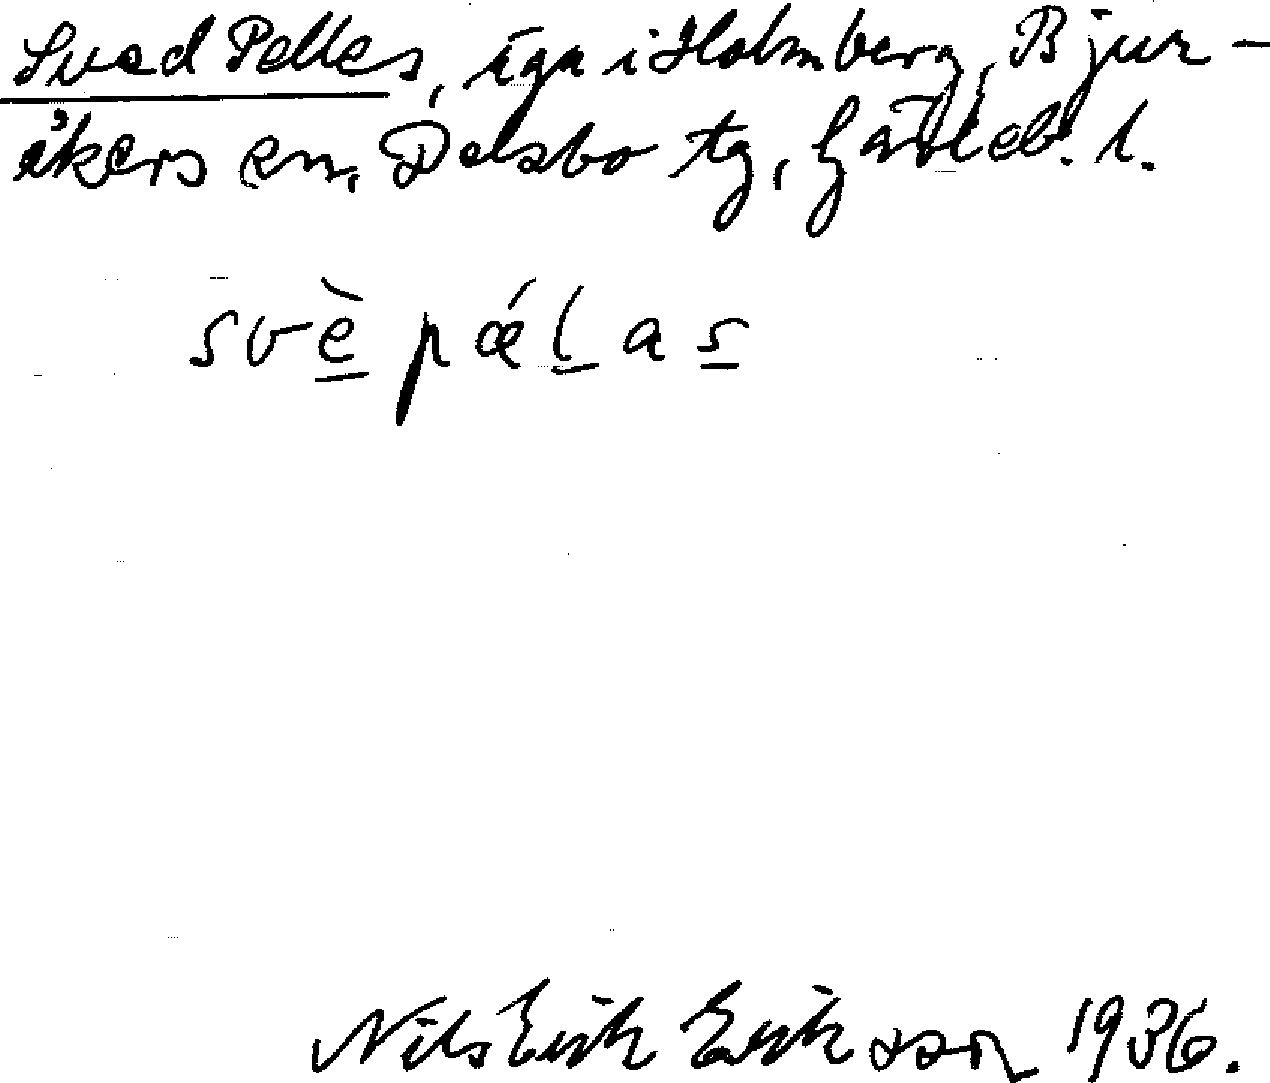 Sved Pelles, äga i Holmberg, Bjur-
åkers sn, Delsbo tg, Gävleb. l.
svè pǽlas
Nils Erik Eriksson 1936.